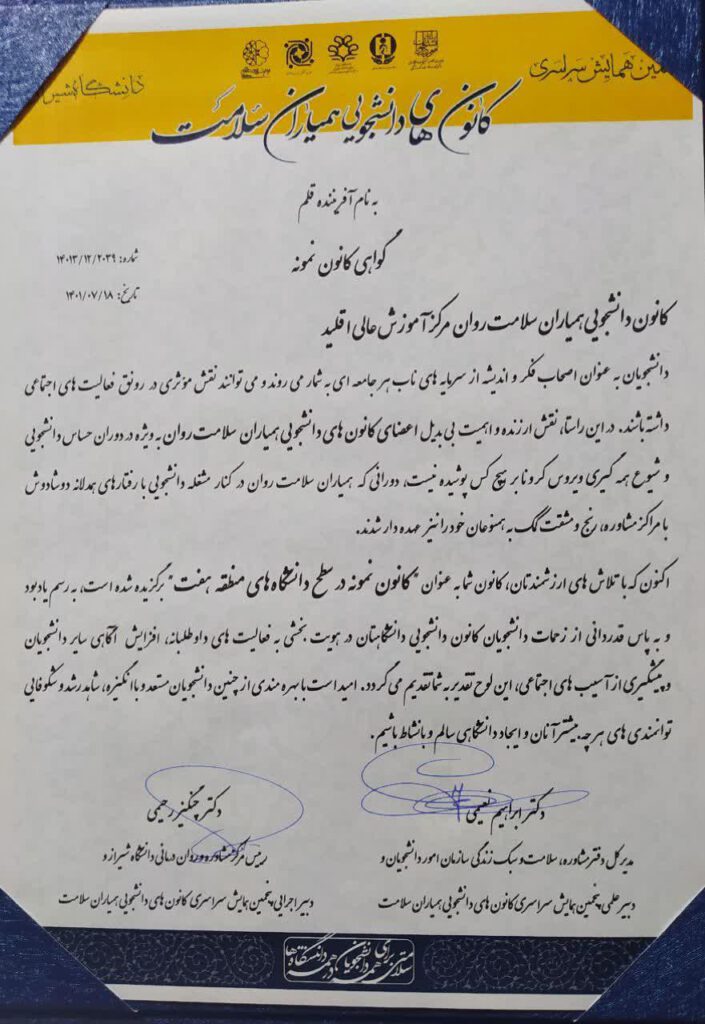 همایش سراسری
دانشگاه شیر
کانون های دانشجویی همیاران سلامت
به نام آفریننده قلم
گواهی کانون نمونه
شماره: ۱۴۰۱۳/۱۲/۲۰۳۹
تاریخ: ۱۴۰۱/۰۷/۱۸
کانون دانشجویی همیاران سلامت روان مرکز آموزش عالی اقلید
دانشجویان به عنوان اصحاب فکر و اندیشه از سرمایه های ناب هر جامعه ای به شمار می روند و می توانند نقش مؤثری در رونق فعالیت های اجتماعی
داشته باشند. در این راستا، نقش ارزنده و اهمیت بی بدیل اعضای کانون های دانشجویی همیاران سلامت روان به ویژه در دوران حساس دانشجویی
و شیوع همه گیری ویروس کرونا بر هیچ کس پوشیده نیست، دورانی که همیاران سلامت روان در کنار مشغله دانشجویی با رفتارهای همدلانه دوشادوش
با مراکز مشاوره، رنج و مشقت کمک به همنوعان خود را نیز عهده دار شدند.
اکنون که با تلاش های ارزشمندتان، کانون شما به عنوان "کانون نمونه در سطح دانشگاه های منطقه هفت" برگزیده شده است، به رسم یادبود
و به پاس قدردانی از زحمات دانشجویان کانون دانشجویی دانشگاهتان در هویت بخشی به فعالیت های داوطلبانه، افزایش آگاهی سایر دانشجویان
و پیشگیری از آسیب های اجتماعی، این لوح تقدیر به شما تقدیم می گردد. امید است با بهره مندی از چنین دانشجویان مستعد و باانگیزه، شاهد رشد و شکوفایی
توانمندی های هرچه بیشتر آنان و ایجاد دانشگاهی سالم و بانشاط باشیم.
دکتر ابراهیم نعیمی
مدیر کل دفتر مشاوره، سلامت و سبک زندگی سازمان امور دانشجویان و
دبیر علمی پنجمین همایش سراسری کانون های دانشجویی همیاران سلامت
دکتر چنگیز رحیمی
رییس مرکز مشاوره و روان درمانی دانشگاه شیراز و
دبیر اجرایی پنجمین همایش سراسری کانون های دانشجویی همیاران سلامت
سلامتی برای همه دانشجویان در همه دانشگاه ها